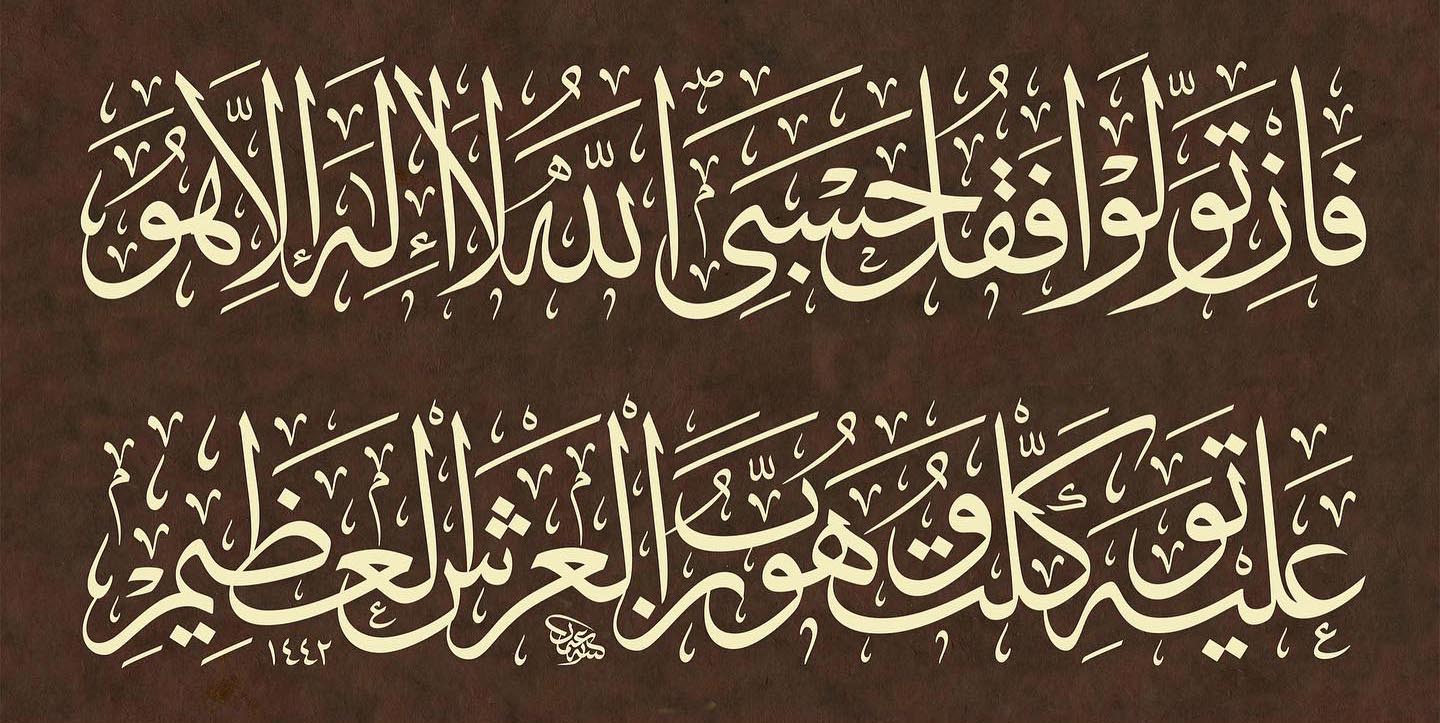 فَإِنْ تَوَلَّوْا فَقُلْ حَسْبِيَ اللّٰهُ لَا إِلٰهَ إِلَّا هُوَ
عَلَيْهِ تَوَكَّلْتُ وَهُوَ رَبُّ الْعَرْشِ الْعَظِيمِ
١٤٤٢